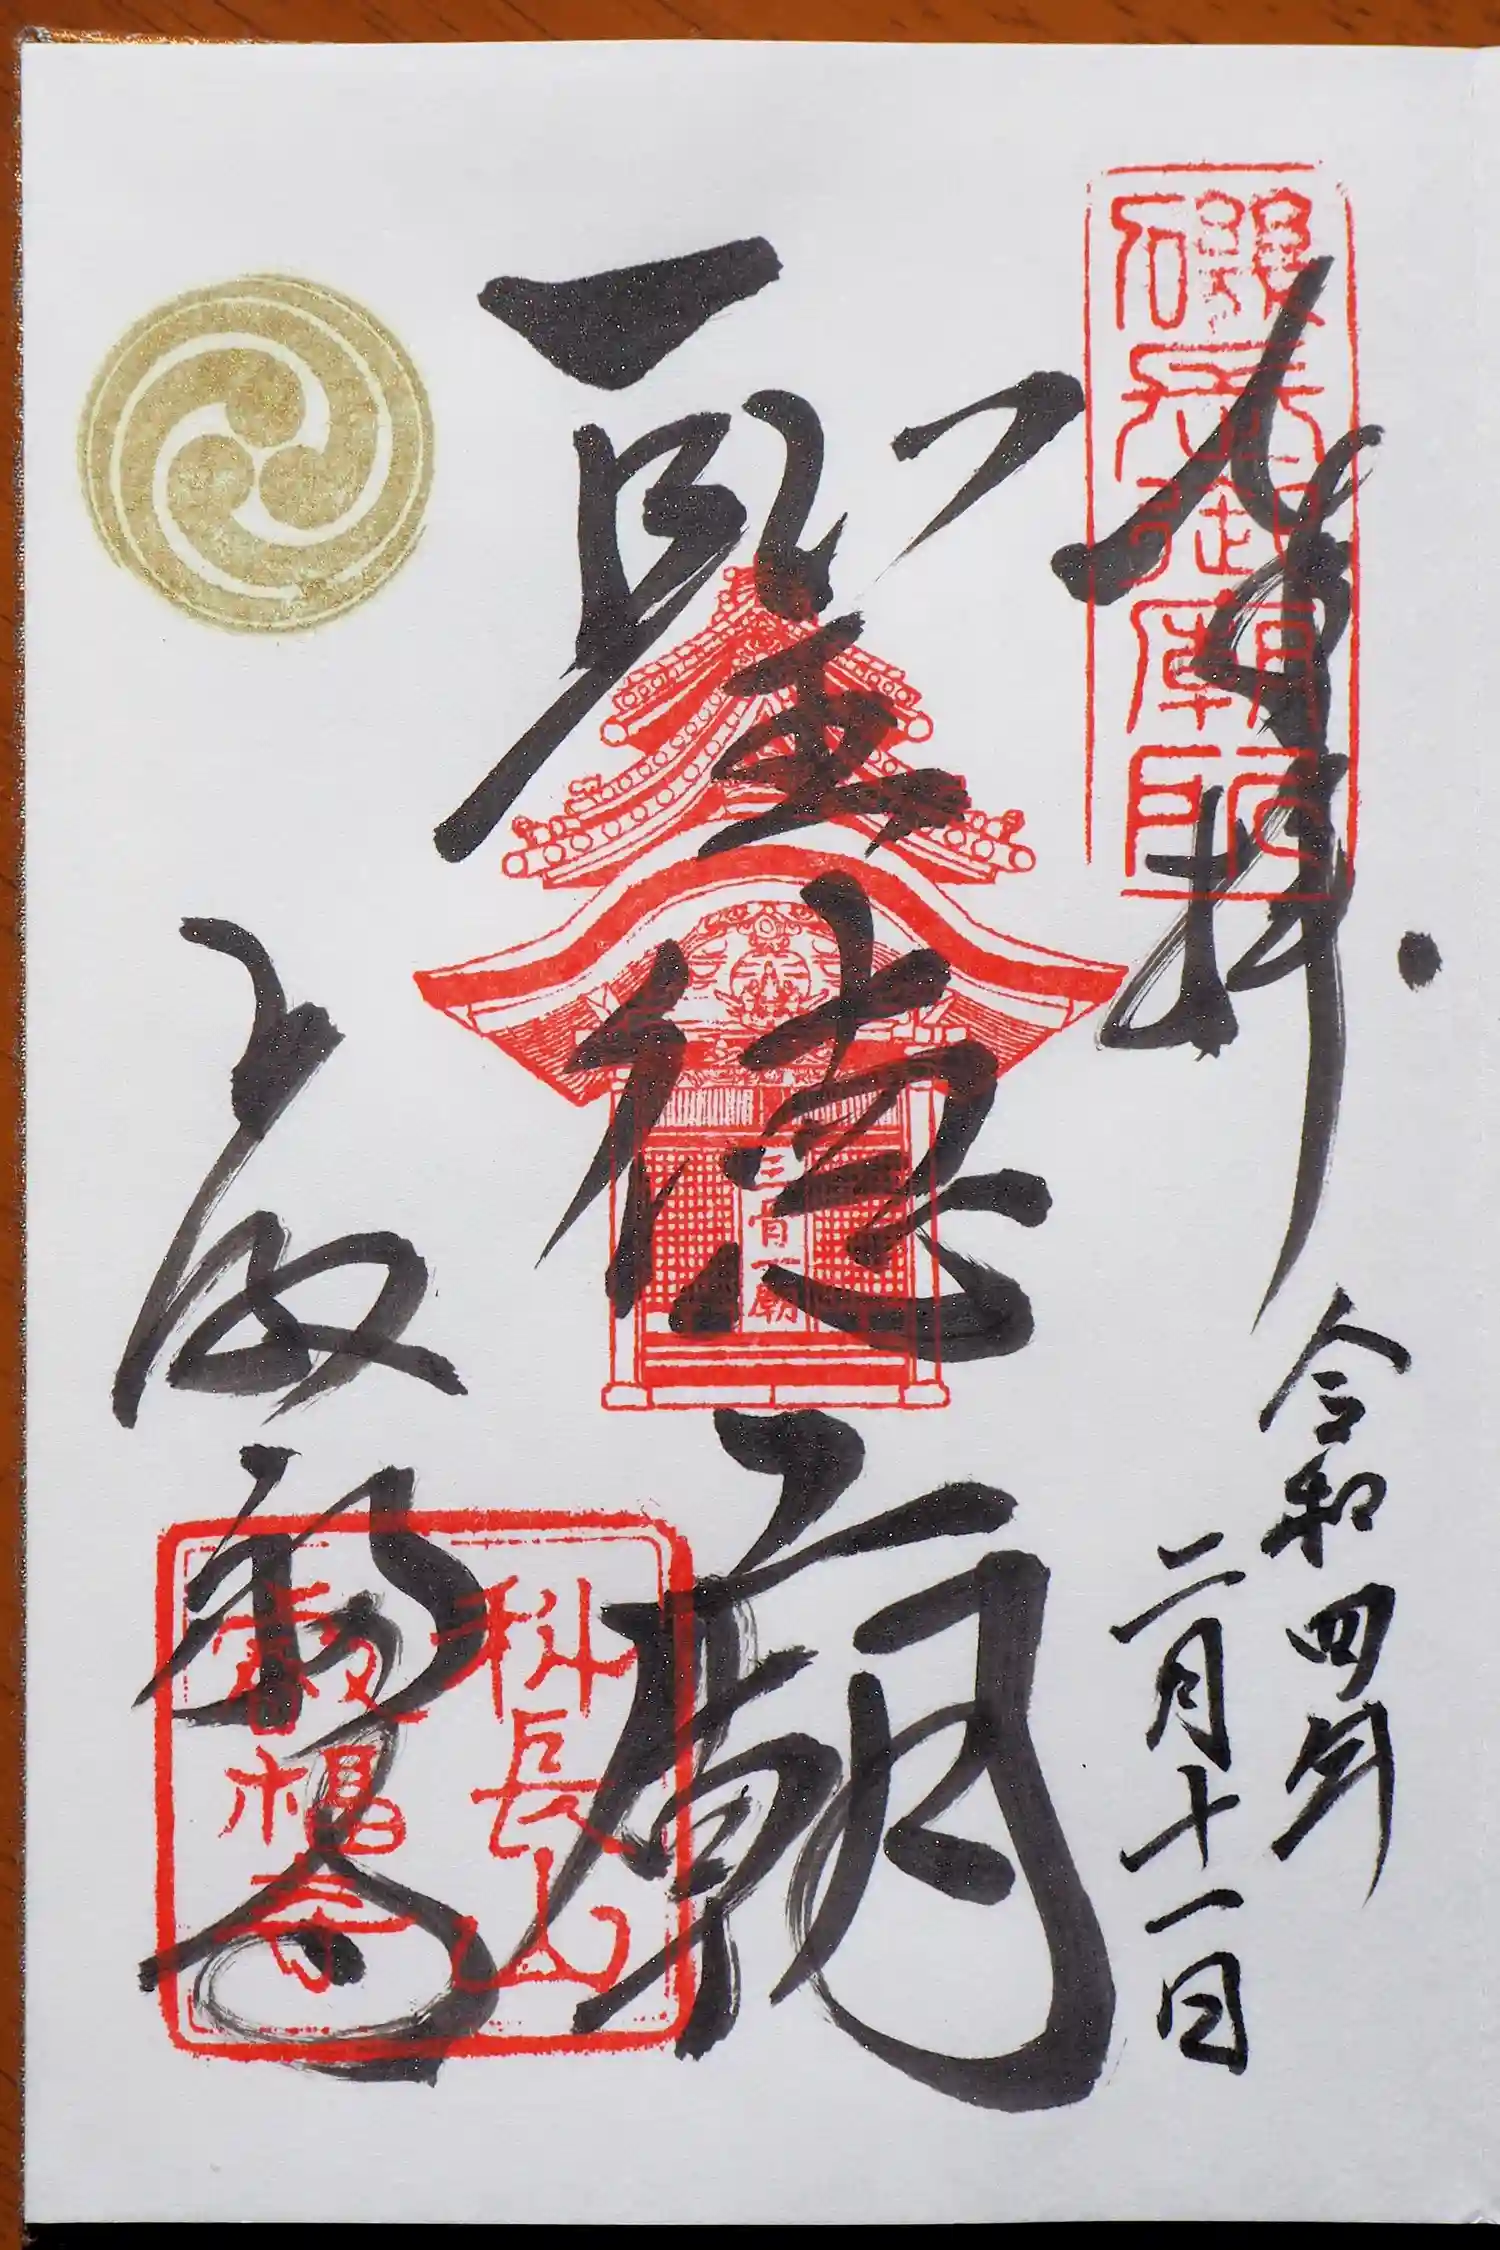 奉拝
磯長御廟所
令和四年
二月十一日
聖徳廟
三骨一廟
上之太子
叡福寺
科長山
叡福寺